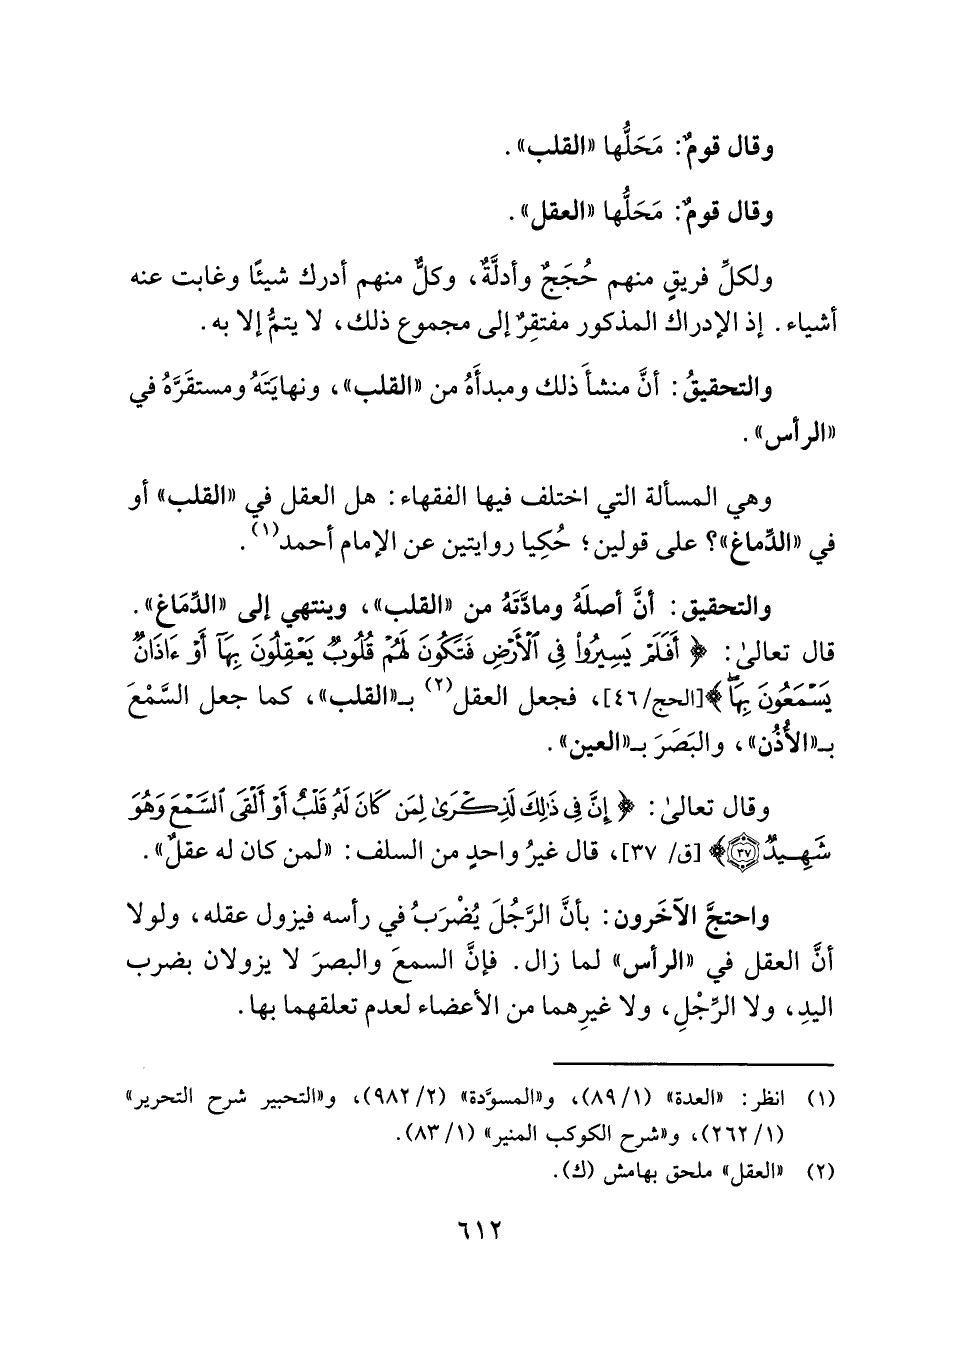 وقال قومٌ: مَحَلُّها «القلب».
وقال قومٌ: مَحَلُّها «العقل».
ولكلِّ فريقٍ منهم حُجَجٌ وأدلَّةٌ، وكلٌّ منهم أدرك شيئًا وغابت عنه
أشياء. إذ الإدراك المذكور مفتقِرٌ إلى مجموع ذلك، لا يتمُّ إلا به.
والتحقيقُ: أنَّ منشأَ ذلك ومبدأَهُ من «القلب»، ونهايَتَهُ ومستقَرَّهُ في
«الرأس».
وهي المسألة التي اختلف فيها الفقهاء: هل العقل في «القلب» أو
في «الدِّماغ»؟ على قولين؛ حُكِيا روايتين عن الإمام أحمد(١).
والتحقيق: أنَّ أصلَهُ ومادَّتَهُ من «القلب»، وينتهي إلى «الدِّمَاغ».
قال تعالىٰ: ﴿أَفَلَمْ يَسِيرُوا۟ فِى ٱلْأَرْضِ فَتَكُونَ لَهُمْ قُلُوبٌ يَعْقِلُونَ بِهَآ أَوْ ءَاذَانٌ
يَسْمَعُونَ بِهَاۖ﴾ [الحج/ ٤٦]، فجعل العقل(٢) بـ«القلب»، كما جعل السَّمْعَ
بـ«الأُذُن»، والبَصَرَ بـ«العين».
وقال تعالىٰ: ﴿إِنَّ فِى ذَٰلِكَ لَذِكْرَىٰ لِمَن كَانَ لَهُۥ قَلْبٌ أَوْ أَلْقَى ٱلسَّمْعَ وَهُوَ
شَهِيدٌ ٣٧﴾ [ق/ ٣٧]، قال غيرُ واحدٍ من السلف: «لمن كان له عقلٌ».
واحتجَّ الآخَرون: بأنَّ الرَّجُلَ يُضْرَبُ في رأسه فيزول عقله، ولولا
أنَّ العقل في «الرأس» لما زال. فإنَّ السمعَ والبصرَ لا يزولان بضرب
اليدِ، ولا الرِّجْلِ، ولا غيرِهما من الأعضاء لعدم تعلقهما بها.
(١) انظر: «العدة» (١/ ٨٩)، و«المسوَّدة» (٢/ ٩٨٢)، و«التحبير شرح التحرير»
(١/ ٢٦٢)، و«شرح الكوكب المنير» (١/ ٨٣).
(٢) «العقل» ملحق بهامش (ك).
٦١٢